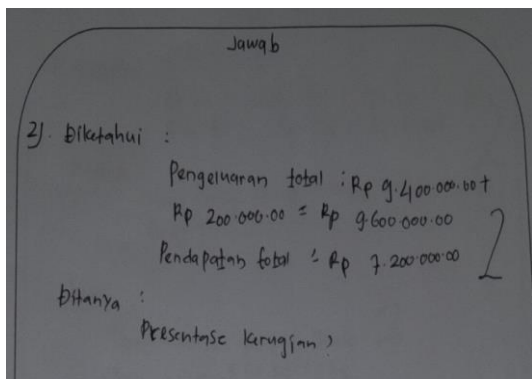 Jawab
2). Diketahui :
Pengeluaran total : Rp 9.400.000.00 +
Rp 200.000.00 = Rp 9.600.000.00
Pendapatan total = Rp 7.200.000.00
2
Ditanya :
Presentase kerugian ?